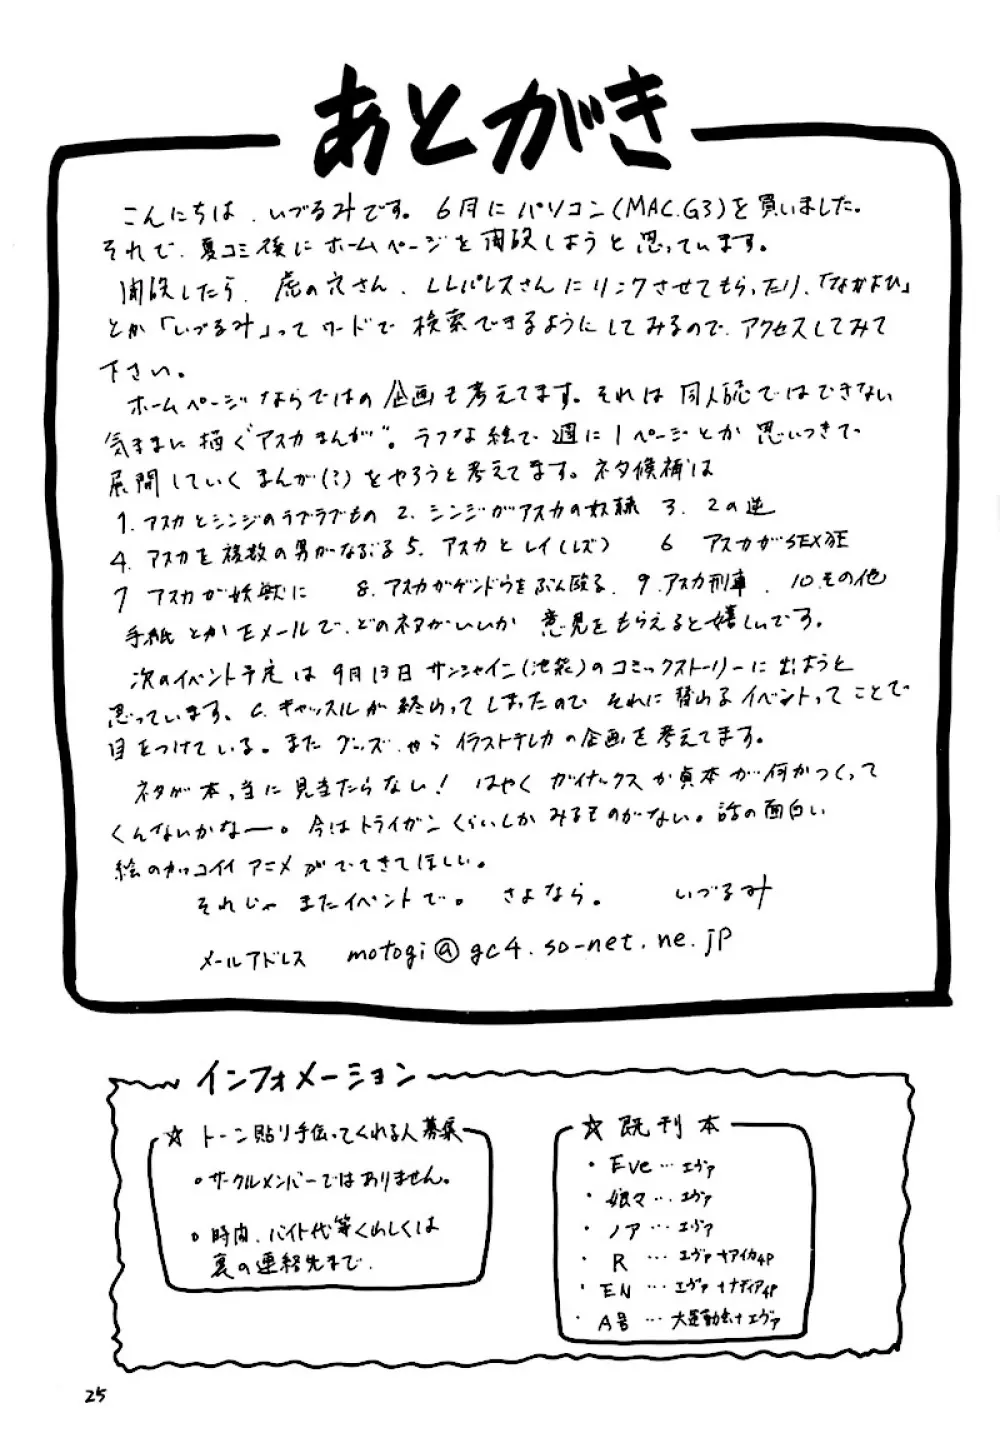 あとがき
こんにちは、いづるみです。6月にパソコン(MAC.G3)を買いました。
それで、夏コミ後にホームページを開設しようと思っています。
開設したら、虎の穴さん、LLパレスさんにリンクさせてもらったり、「なかよひ」
とか「いづるみ」ってワードで検索できるようにしてみるので、アクセスしてみて
下さい。
ホームページならではの企画も考えてます。それは同人誌ではできない
気ままに描く"アスカまんが"。ラフな絵で週に1ページとか思いつきで
展開していくまんが(?)をやろうと考えてます。ネタ候補は
1. アスカとシンジのラブラブもの 2. シンジがアスカの奴隷 3. 2の逆
4. アスカを複数の男がなぶる 5. アスカとレイ(レズ) 6 アスカがSEX狂
7 アスカが妖獣に 8. アスカがゲンドウをぶん殴る. 9. アスカ刑事. 10. その他
手紙とかEメールで、どのネタがいいか意見をもらえると嬉しいです。
次のイベント予定は9月13日サンシャイン(池袋)のコミックストーリーに出ようと
思っています。C.キャッスルが終わってしまったので、それに替わるイベントってことで
目をつけている。またグッズやらイラストテレカの企画を考えてます。
ネタが本当に見当たらない! はやくガイナックスか貞本が何かつくって
くんないかなー。今はトライガンくらいしかみるものがない。話の面白い
絵のカッコイイアニメがでてきてほしい。
それじゃまたイベントで。さよなら。 いづるみ
メールアドレス motogi@gc4.so-net.ne.jp
インフォメーション
☆ トーン貼り手伝ってくれる人募集
・サークルメンバーではありません。
・時間、バイト代等くわしくは
裏の連絡先まで.
☆ 既刊本
・Eve…エヴァ
・娘々…エヴァ
・ノア…エヴァ
・R …エヴァ+アイカ4P
・EN …エヴァ+ナディア4P
・A号 …大運動会+エヴァ
25